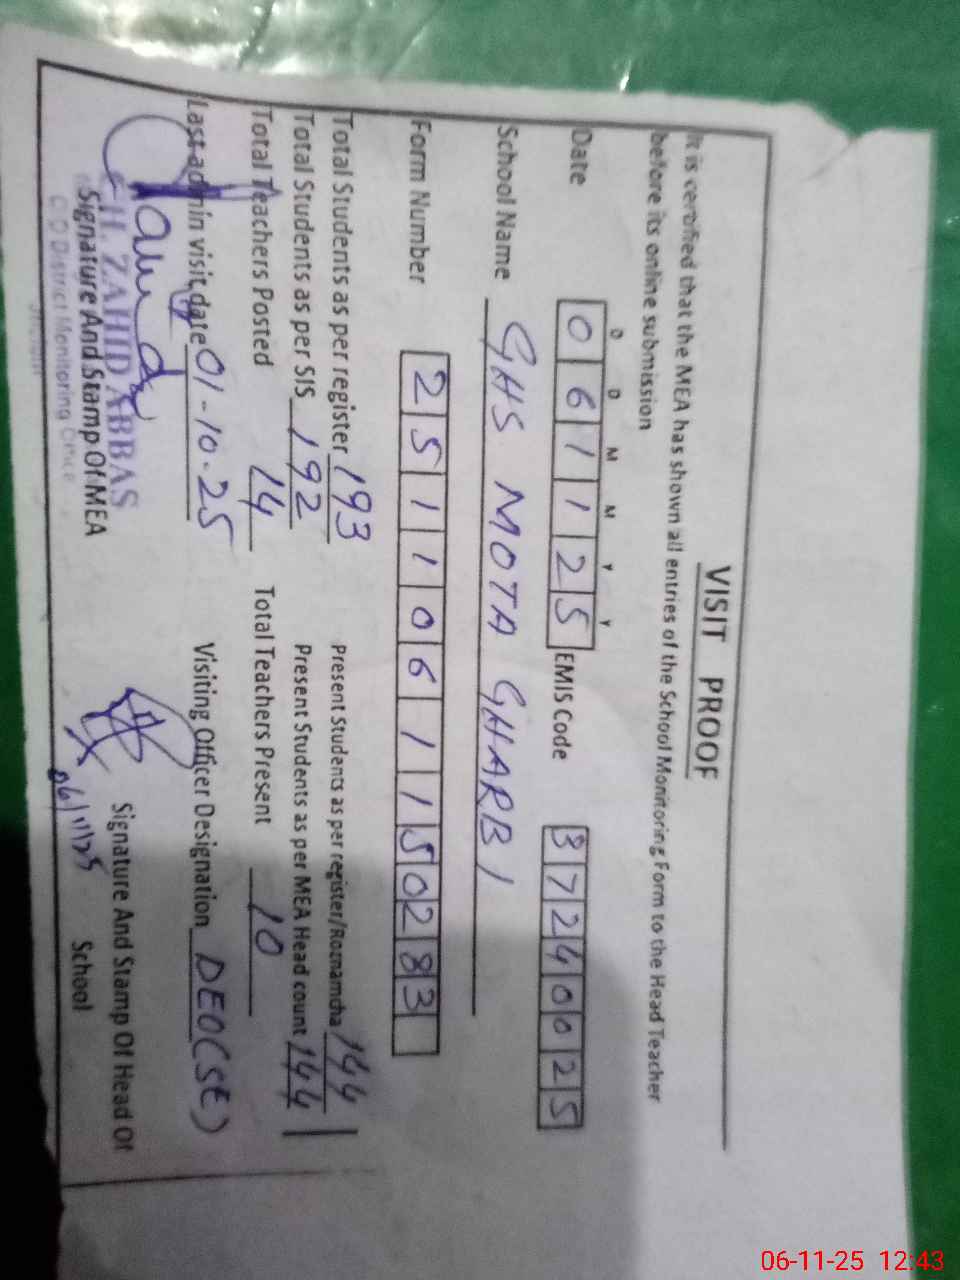 VISIT PROOF
It is certified that the MEA has shown all entries of the School Monitoring Form to the Head Teacher
before its online submission
D D M M Y Y
Date 0 6 1 1 2 5 EMIS Code 3 7 2 4 0 0 2 5
School Name GHS MOTA GHARBI
Form Number 2 5 1 1 0 6 1 1 5 0 2 8 3
Total Students as per register 193 Present Students as per register/Roznamcha 144
Total Students as per SIS 192 Present Students as per MEA Head count 144
Total Teachers Posted 14 Total Teachers Present 10
Last admin visit date 01-10-25 Visiting Officer Designation DEO(SE)
ZAHID ABBAS
Signature And Stamp Of MEA Signature And Stamp Of Head Of
School
District Monitoring Office
06/11/25
06-11-25 12:43